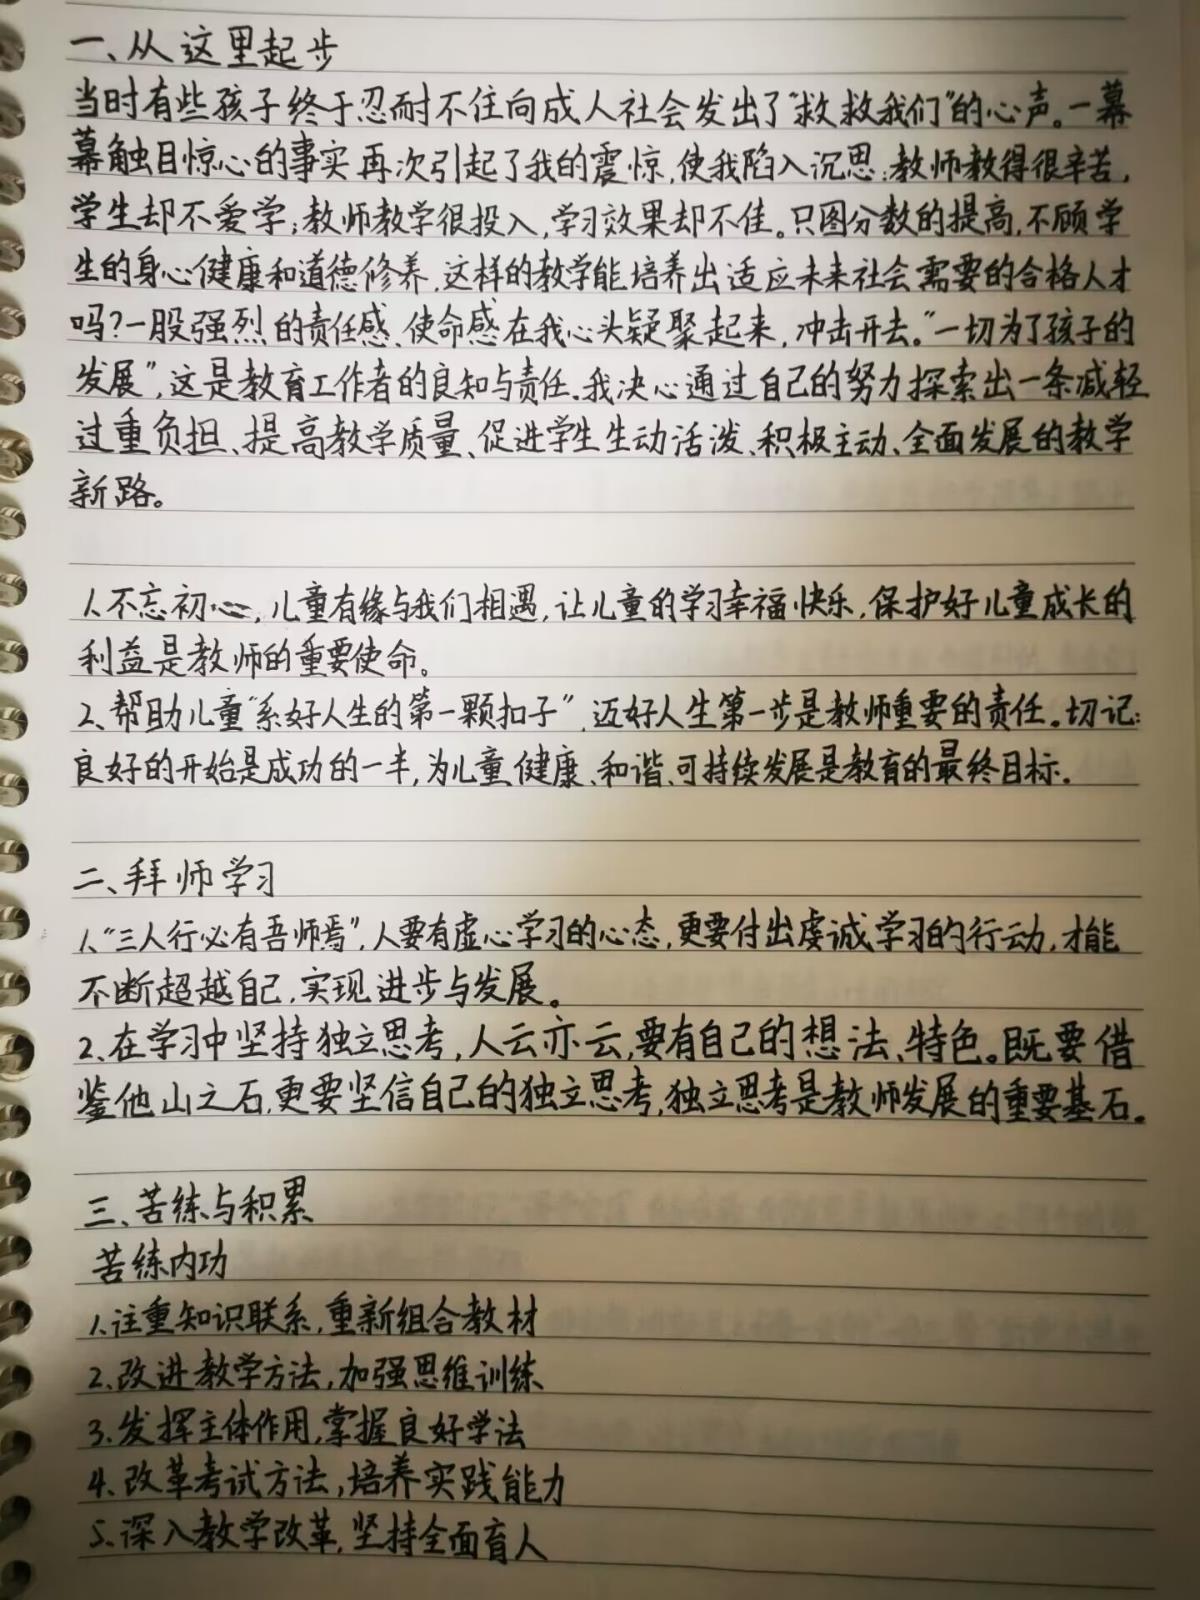 一、从这里起步
当时有些孩子终于忍耐不住向成人社会发出了“救救我们”的心声。一幕
幕触目惊心的事实再次引起了我的震惊,使我陷入沉思:教师教得很辛苦,
学生却不爱学;教师教学很投入,学习效果却不佳。只图分数的提高,不顾学
生的身心健康和道德修养,这样的教学能培养出适应未来社会需要的合格人才
吗?一股强烈的责任感、使命感在我心头疑聚起来,冲击开去。“一切为了孩子的
发展”,这是教育工作者的良知与责任。我决心通过自己的努力探索出一条减轻
过重负担、提高教学质量、促进学生生动活泼、积极主动、全面发展的教学
新路。
1、不忘初心,儿童有缘与我们相遇,让儿童的学习幸福快乐,保护好儿童成长的
利益是教师的重要使命。
2、帮助儿童“系好人生的第一颗扣子”,迈好人生第一步是教师重要的责任。切记:
良好的开始是成功的一半,为儿童健康、和谐、可持续发展是教育的最终目标。
二、拜师学习
1、“三人行必有吾师焉”,人要有虚心学习的心态,更要付出虔诚学习的行动,才能
不断超越自己,实现进步与发展。
2、在学习中坚持独立思考,人云亦云,要有自己的想法、特色。既要借
鉴他山之石,更要坚信自己的独立思考,独立思考是教师发展的重要基石。
三、苦练与积累
苦练内功
1、注重知识联系,重新组合教材
2、改进教学方法,加强思维训练
3、发挥主体作用,掌握良好学法
4、改革考试方法,培养实践能力
5、深入教学改革,坚持全面育人